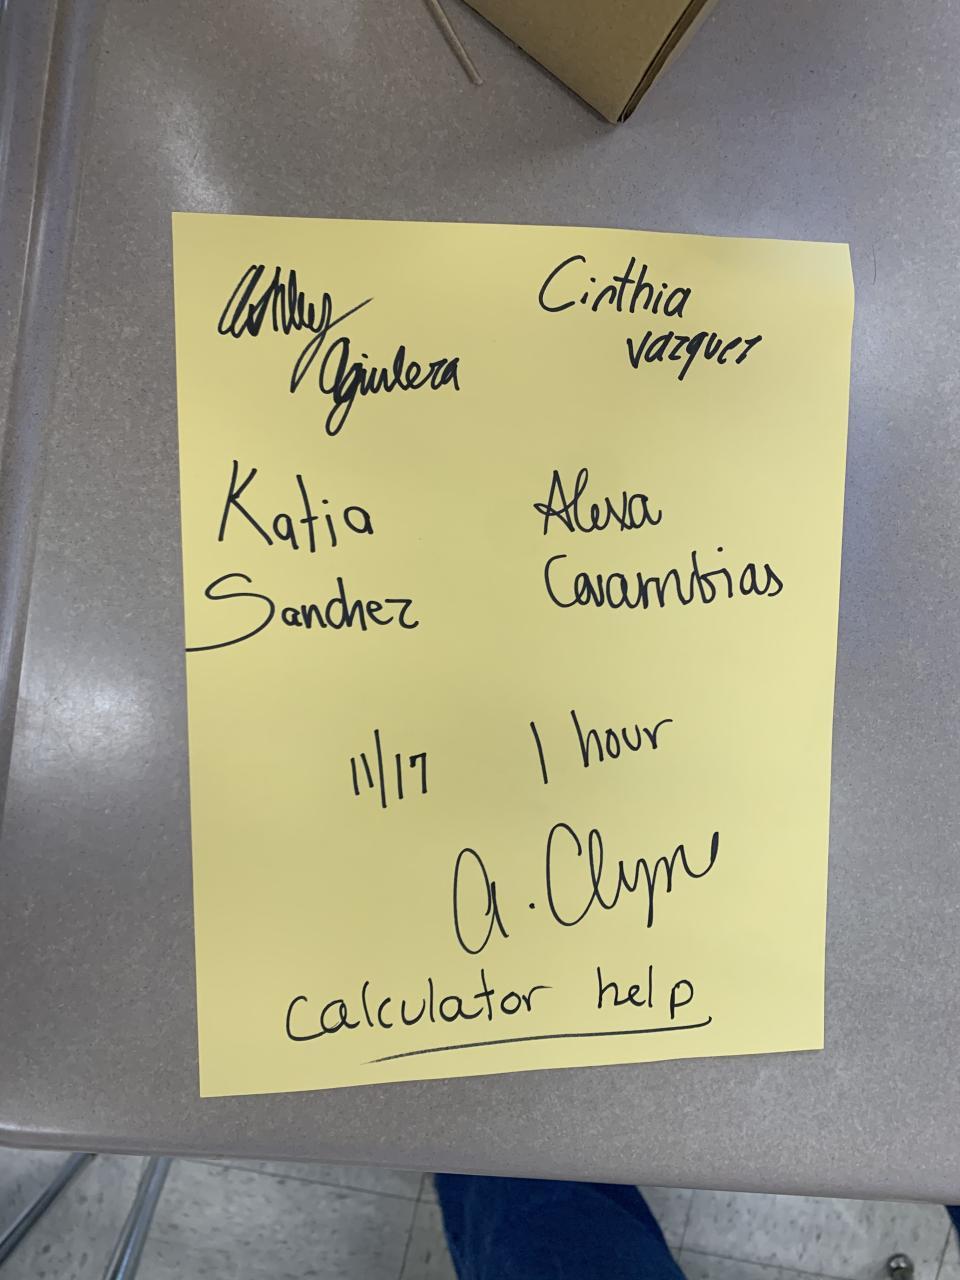 Ashley
Aguilera
Cinthia
Vazquez
Katia
Sanchez
Alexa
Covarrubias
11/17 1 hour
A. Clyne
Calculator help